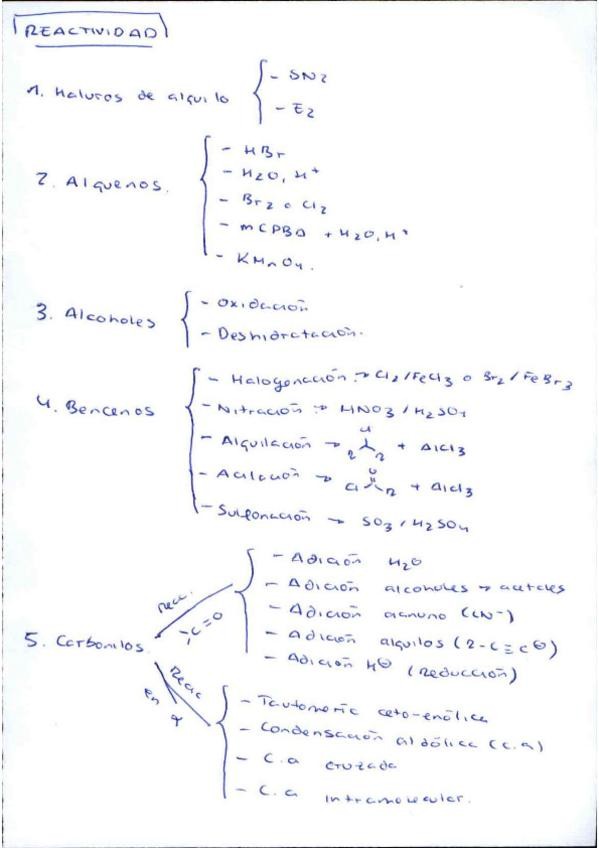 REACTIVIDAD
1. Haluros de alquilo
- SN2
- E2
2. Alquenos.
- HBr
- H2O, H+
- Br2 o Cl2
- mCPBA + H2O, H+
- KMnO4.
3. Alcoholes
- Oxidación
- Deshidratación.
4. Bencenos
- Halogenación → Cl2/FeCl3 o Br2/FeBr3
- Nitración → HNO3/H2SO4
- Alquilación → Cl R R + AlCl3
- Acilación → Cl O R + AlCl3
- Sulfonación → SO3/H2SO4
5. Carbonilos.
Reac. C=O
- Adición H2O
- Adición alcoholes → acetales
- Adición cianuro (CN-)
- Adición alquilos (R-C≡C⊖)
- Adición H⊖ (Reducción)
Reac en α
- Tautomería ceto-enólica
- Condensación aldólica (c.a)
- C.a cruzada
- C.a intramolecular.